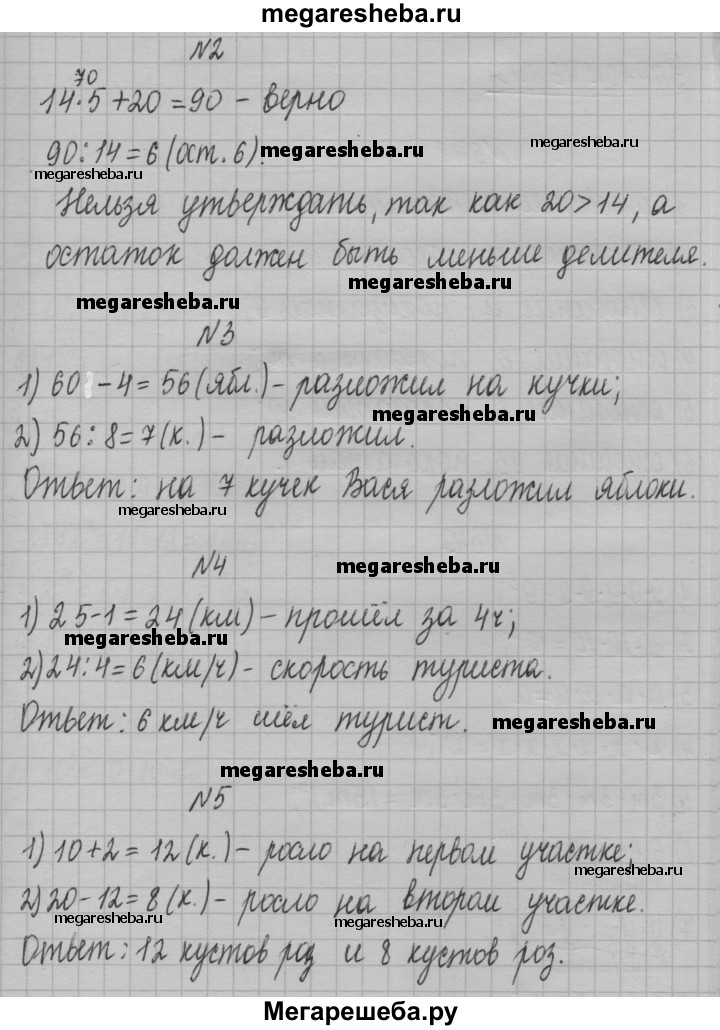 megaresheba.ru
N2
70
14·5+20=90 - верно
90:14=6(ост. 6).
megaresheba.ru
megaresheba.ru
megaresheba.ru
Нельзя утверждать, так как 20>14, а
остаток должен быть меньше делителя.
megaresheba.ru
megaresheba.ru
N3
1) 60 -4=56(ябл.)- разложил на кучки;
megaresheba.ru
2) 56:8=7(к.)- разложил.
Ответ: на 7 кучек Вася разложил яблоки.
megaresheba.ru
N4
megaresheba.ru
1) 25-1=24(км)-прошёл за 4ч;
megaresheba.ru
2)24:4=6(км/ч)-скорость туриста.
megaresheba.ru
Ответ: 6 км/ч шёл турист.
megaresheba.ru
megaresheba.ru
N5
1) 10+2=12(к.)-росло на первом участке;
megaresheba.ru
2)20-12=8(к.)-росло на втором участке.
megaresheba.ru
megaresheba.ru
Ответ: 12 кустов роз и 8 кустов роз.
Мегарешеба.ру